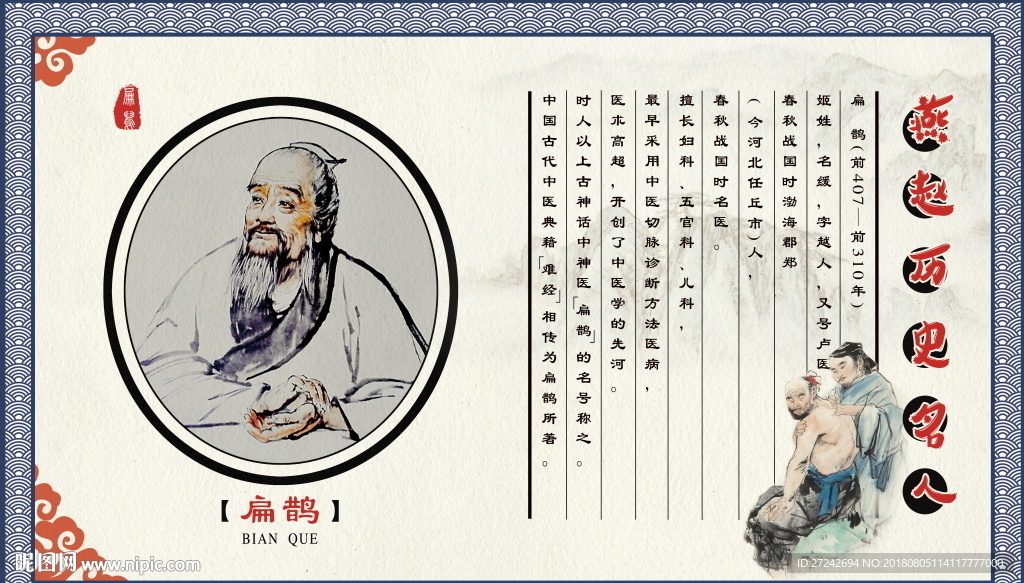 燕赵历史名人
扁 鹊(前407—前310年)
姬姓,名缓,字越人,又号卢医
春秋战国时渤海郡郑
(今河北任丘市)人,
春秋战国时名医。
擅长妇科、五官科、儿科,
最早采用中医切脉诊断方法医病,
医术高超,开创了中医学的先河。
时人以上古神话中神医「扁鹊」的名号称之。
中国古代中医典籍「难经」相传为扁鹊所著。
扁鹊
【扁鹊】
BIAN QUE
昵图网 www.nipic.com
ID:27242694 NO:20180805114117777000